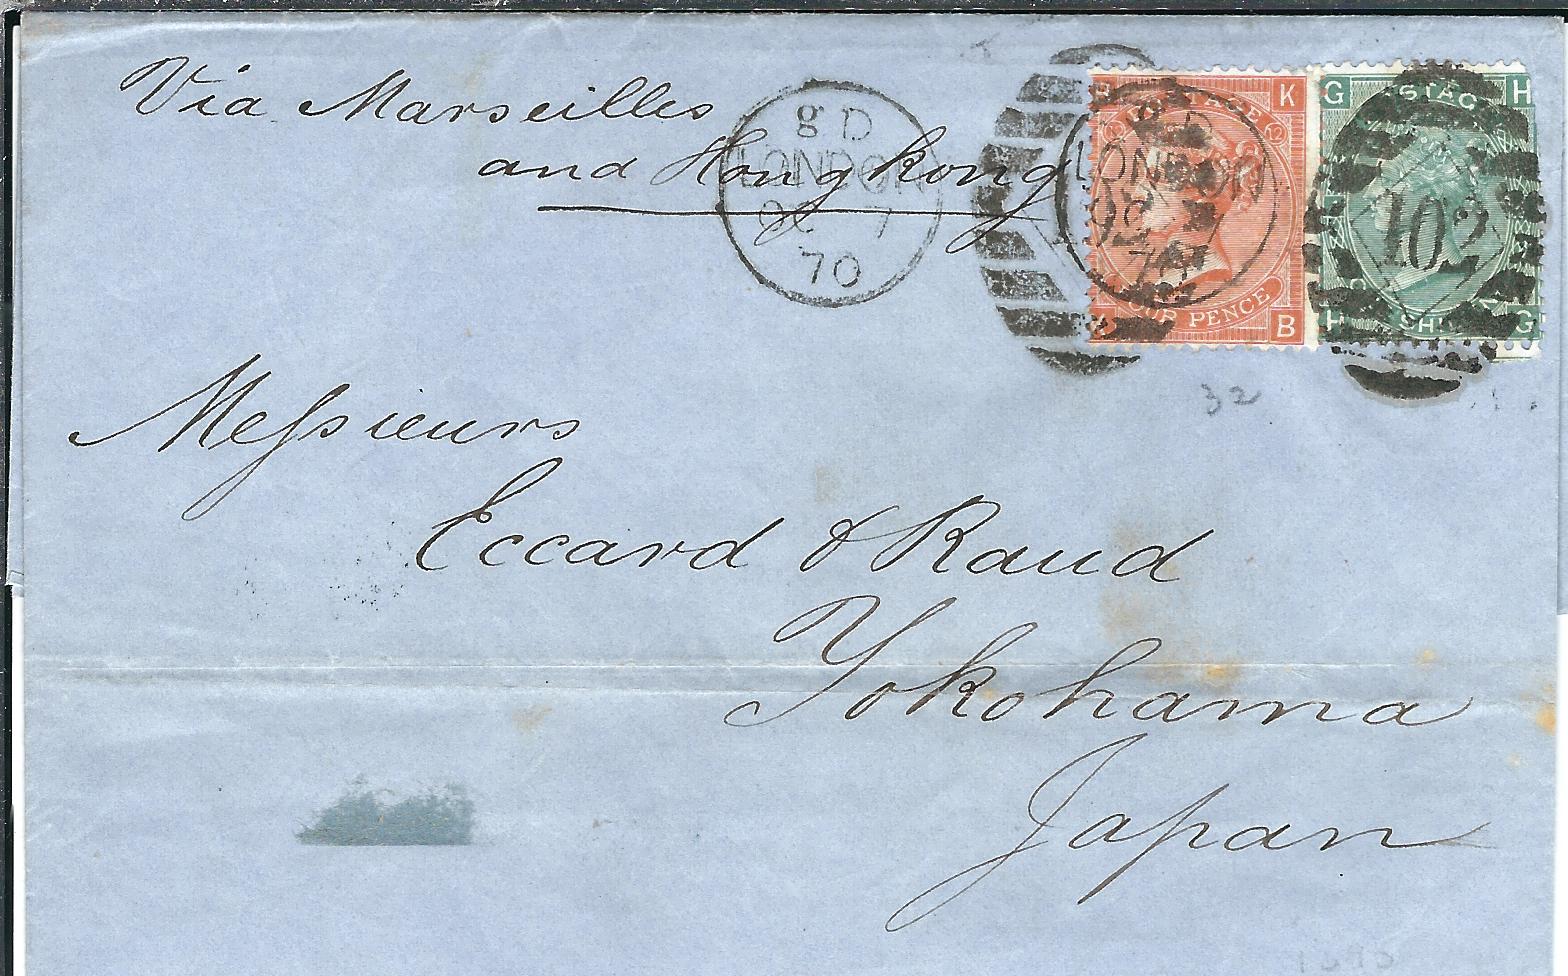 Via Marseilles
and Hongkong
8 D
LONDON
OC 7
70
K
POSTAGE
12
12
LONDON
70
FOUR PENCE
B
G
H
POSTAGE
102
H
SHILLING
G
32
Messieurs
Eccard & Raud
Yokohama
Japan